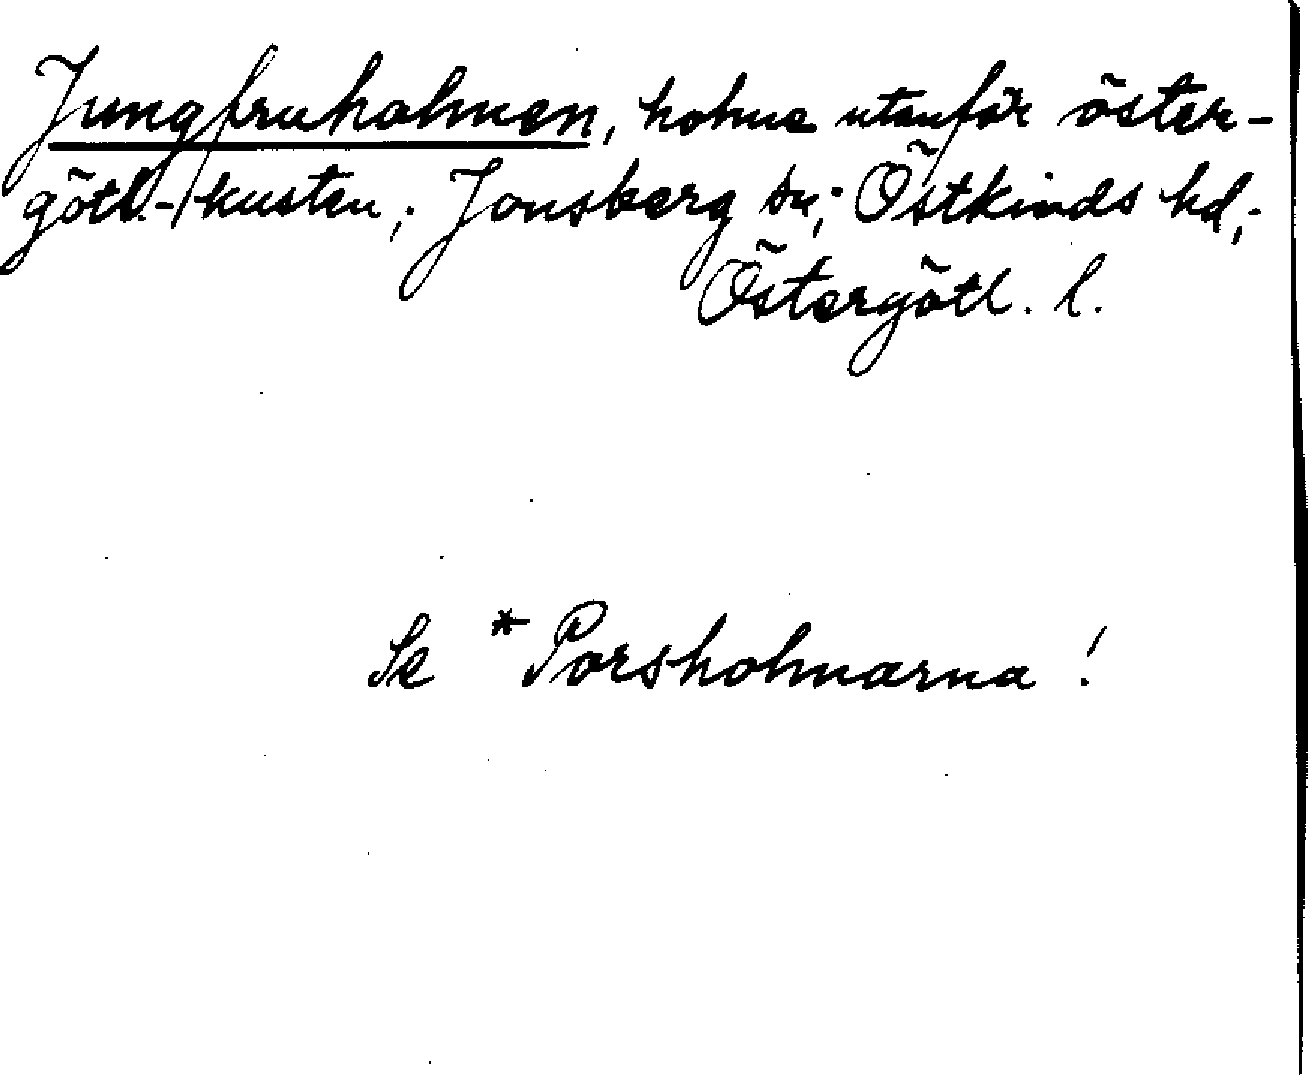 Jungfruholmen, holme utanför öster-
götl.-kusten; Jonsberg sn; Östkinds hd;
Östergötl. l.
Se *Porsholmarna!